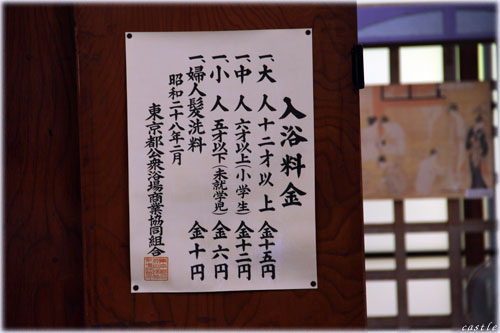 入浴料金
一、大人 十二才以上 金十五円
一、中人 六才以上(小学生) 金十二円
一、小人 五才以下(未就学児) 金六円
一、婦人髪洗料 金十円
昭和二十八年二月
東京都公衆浴場商業協同組合
castle